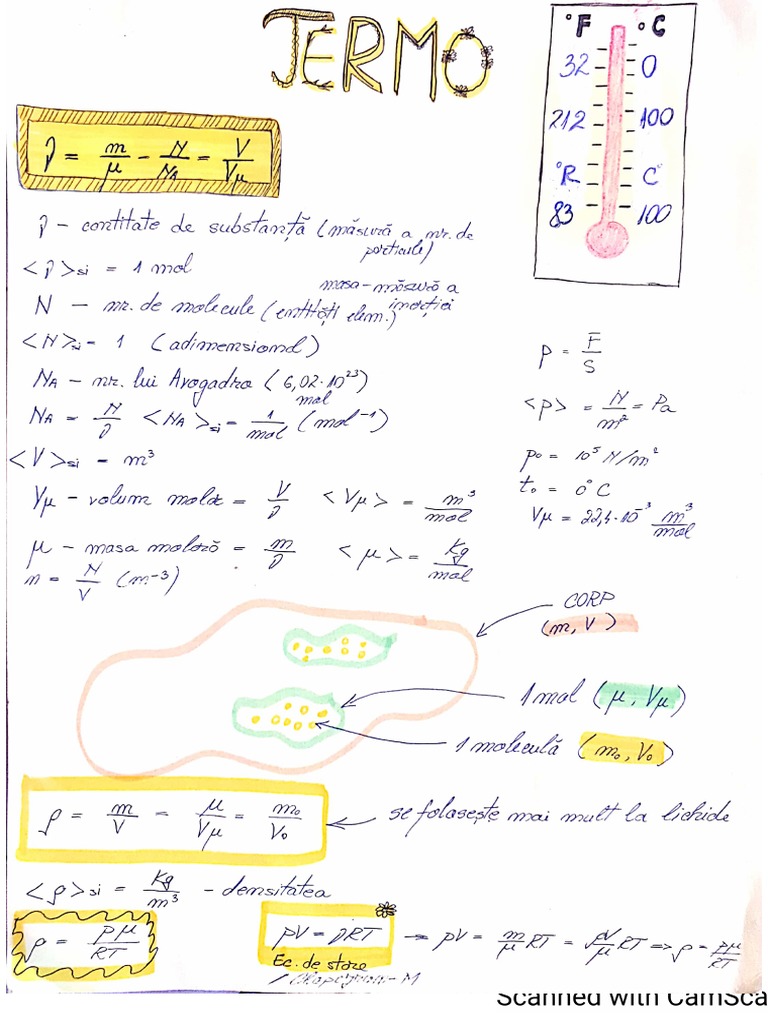 TERMO
°F °C
32 0
212 100
°R C°
83 100
ν = m/μ = N/NA = V/Vμ
ν - contitate de substanță (măsură a nr. de particule)
<ν>si = 1 mol
masa - măsură a inerției
N - nr. de molecule (entități elem.)
<N>si = 1 (adimensional)
NA - nr. lui Avogadro (6,02·10²³) mol
NA = N/ν <NA>si = 1/mol (mol⁻¹)
<V>si = m³
Vμ - volum molar = V/ν <Vμ> = m³/mol
μ - masa molară = m/ν <μ> = Kg/mol
n = N/V (m⁻³)
p = F/S
<p> = N/m² = Pa
p₀ = 10⁵ N/m²
t₀ = 0°C
Vμ = 22,4·10⁻³ m³/mol
CORP
(m, V)
1 mol (μ, Vμ)
1 moleculă (m₀, V₀)
ρ = m/V = μ/Vμ = m₀/V₀ se folosește mai mult la lichide
<ρ>si = Kg/m³ - densitatea
ρ = pμ/RT
pV = νRT → pV = m/μ RT = ρV/μ RT => ρ = pμ/RT
Ec. de stare
/ Clapeyron - M
Scanned with CamSca